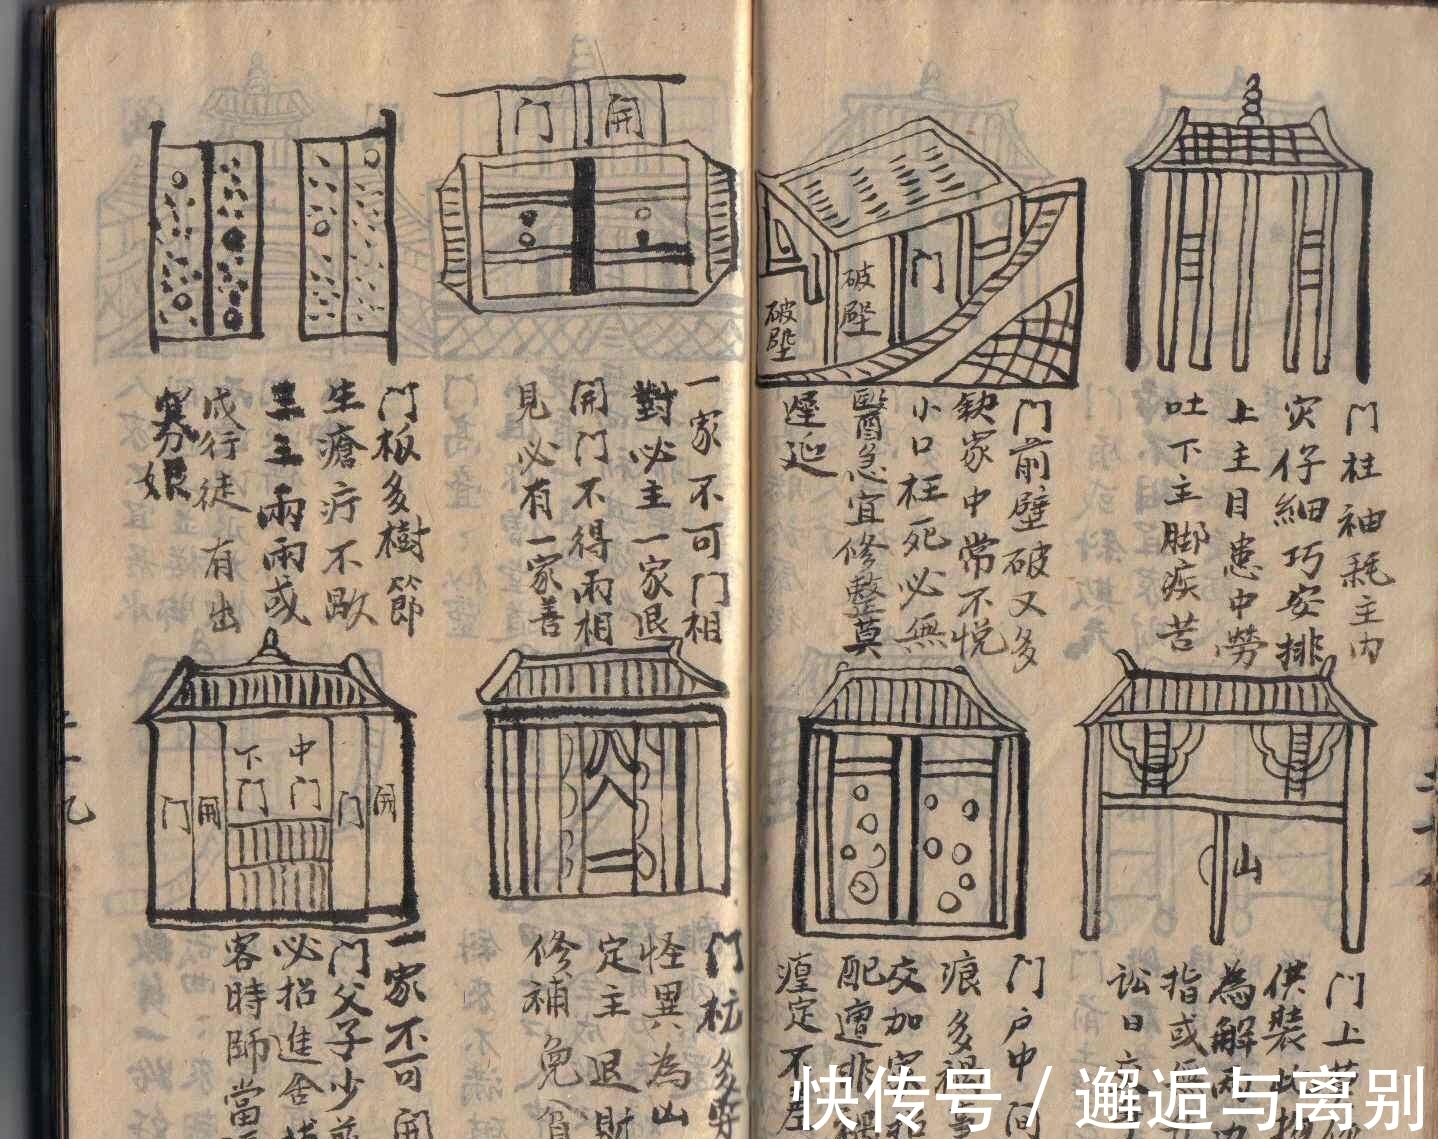 门柱袖耗主内
灾仔細巧安排
上主目患中劳
吐下主脚疾苦
门
破壁
破壁
门前壁破又多
缺家中常不悦
小口枉死必無
醫急宜修整莫
遲延
门
開
一家不可门相
對必主一家退
開门不得兩相
見必有一家善
门板多樹節
生瘡疔不歇
三主兩兩或
成行徒有出
寡娘
山
门上
供裝此
為解
指或
訟日
门户中间
痕多禍
交加家
配遭非
瘟定不
门栀多
怪異為山
定主退財
修補免貧
中门
下门
開
门
開
门
一家不可開
门父子少
必招進舍
客時師當
快传号 / 邂逅与离别